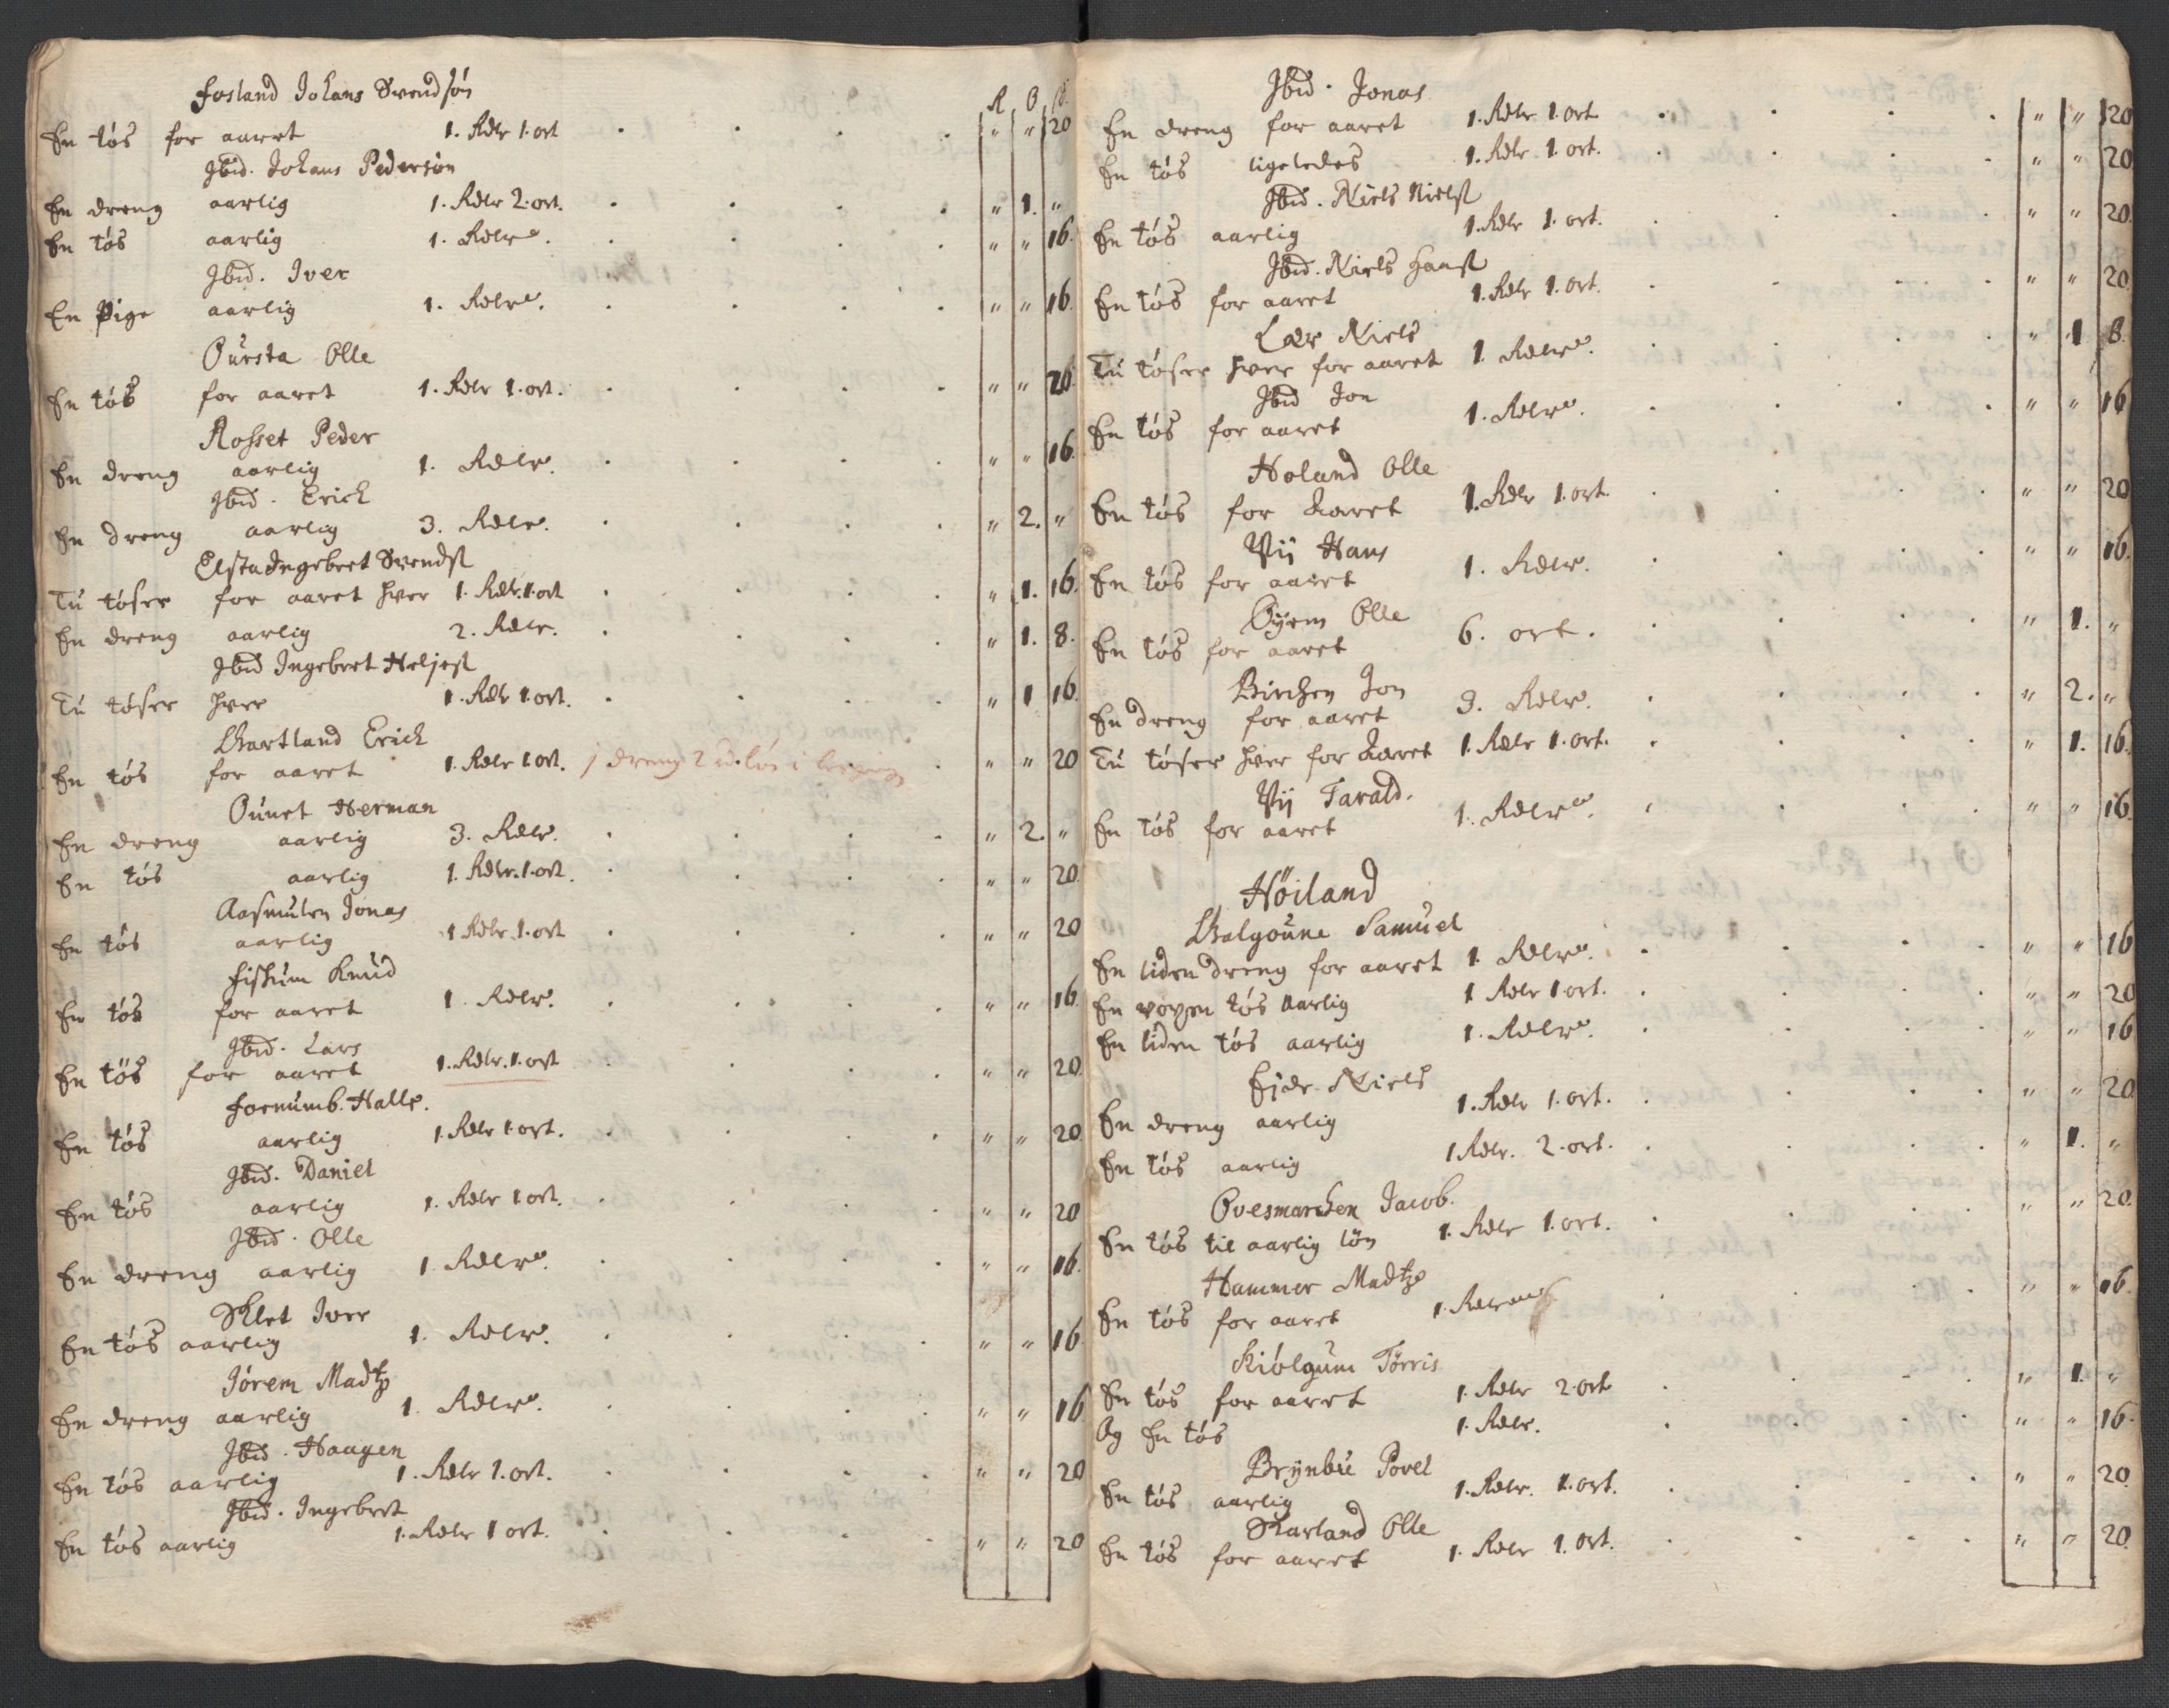 Fosland Johans Svendsøn
R O ß
En tøs for aaret 1. Rdlr 1. ort " " 20
Jbid. Johans Pedersøn
En dreng aarlig 1. Rdlr 2. ort. " 1. "
En tøs aarlig 1. Rdlr. " " 16.
Jbid. Iver
En Pige aarlig 1. Rdlr. " " 16.
Oursta Olle
En tøs for aaret 1. Rdlr 1. ort. " " 20.
Rosset Peder
En dreng aarlig 1. Rdlr. " " 16.
Jbid. Erich
En dreng aarlig 3. Rdlr. " 2. "
Elsta Ingebret Svendsß
Tu tøser for aaret hver 1. Rdlr. 1. ort " 1. 16.
En dreng aarlig 2. Rdlr. " 1. 8.
Jbid Ingebret Heljesß
Tu tøser hver 1. Rdlr 1. ort. " 1 16.
Erich
En tøs for aaret 1. Rdlr 1 ort. j dreng 2 " " 20
Ouuet Herman
En dreng aarlig 3. Rdlr. " 2. "
En tøs aarlig 1. Rdlr. 1. ort. " " 20.
Aasmulen Jonas
En tøs aarlig 1 Rdlr. 1. ort " " 20
Fishum Knud
En tøs for aaret 1. Rdlr. " " 16.
Jbid. Lars
En tøs for aaret 1. Rdlr. 1. ort " " 20.
Fornumb. Halle.
En tøs aarlig 1. Rdlr 1. ort. " " 20.
Jbid. Daniel
En tøs aarlig 1. Rdlr 1 ort. " " 20
Jbid. Olle
En dreng aarlig 1. Rdlr. " " 16.
Sklet Iver
En tøs aarlig 1. Rdlr. " " 16.
Jørem Madtz
En dreng aarlig 1. Rdlr. " " 16
Jbid. Haagen
En tøs aarlig 1. Rdlr 1. ort. " " 20
Jbid. Ingebret
En tøs aarlig 1. Rdlr 1 ort. " " 20
Jbid. Jonas
En dreng for aaret 1. Rdlr 1 ort. " " 20
En tøs ligeledes 1. Rdlr 1. ort. " " 20
Jbid. Niels Nielsß
En tøs aarlig 1. Rdlr 1. ort. " " 20.
Jbid. Niels Hansß
En tøs for aaret 1. Rdlr 1. ort. " " 20.
Lær Niels
Tu tøser hver for aaret 1. Rdlr. " 1 8.
Jbid Jon
En tøs for aaret 1. Rdlr. " " 16
Holand Olle
En tøs for Aaret 1. Rdlr 1. ort. " " 20
Vij Hans
En tøs for aaret 1. Rdlr. " " 16.
Øyem Olle
En tøs for aaret 6. ort. " 1. "
Birchen Jon
En dreng for aaret 3. Rdlr. " 2. "
Tu tøser hver for Aaret 1. Rdlr 1. ort. " 1. 16.
Vij Tarald.
En tøs for aaret 1. Rdlr. " " 16.
Höiland
Samuel
En liden dreng for aaret 1. Rdlr. " " 16
En voxen tøs Aarlig 1 Rdlr 1 ort. " " 20
En liden tøs aarlig 1. Rdlr. " " 16
Niels
En dreng aarlig 1. Rdlr 1. ort. " " 20
En tøs aarlig 1 Rdlr. 2. ort. " 1. "
Ovesmarchen Jacob.
En tøs til aarlig løn 1. Rdlr 1. ort. " " 20.
Hammer Madtz
En tøs for aaret 1. Rdlr " " 16.
Kiølgum Tørris
En tøs for aaret 1. Rdlr 2. ort " 1. "
Og En tøs 1. Rdlr. " " 16.
Brynbu Povel
En tøs aarlig 1. Rdlr. 1. ort. " " 20
Skarland Olle
En tøs for aaret 1. Rdlr 1. ort. " " 20.